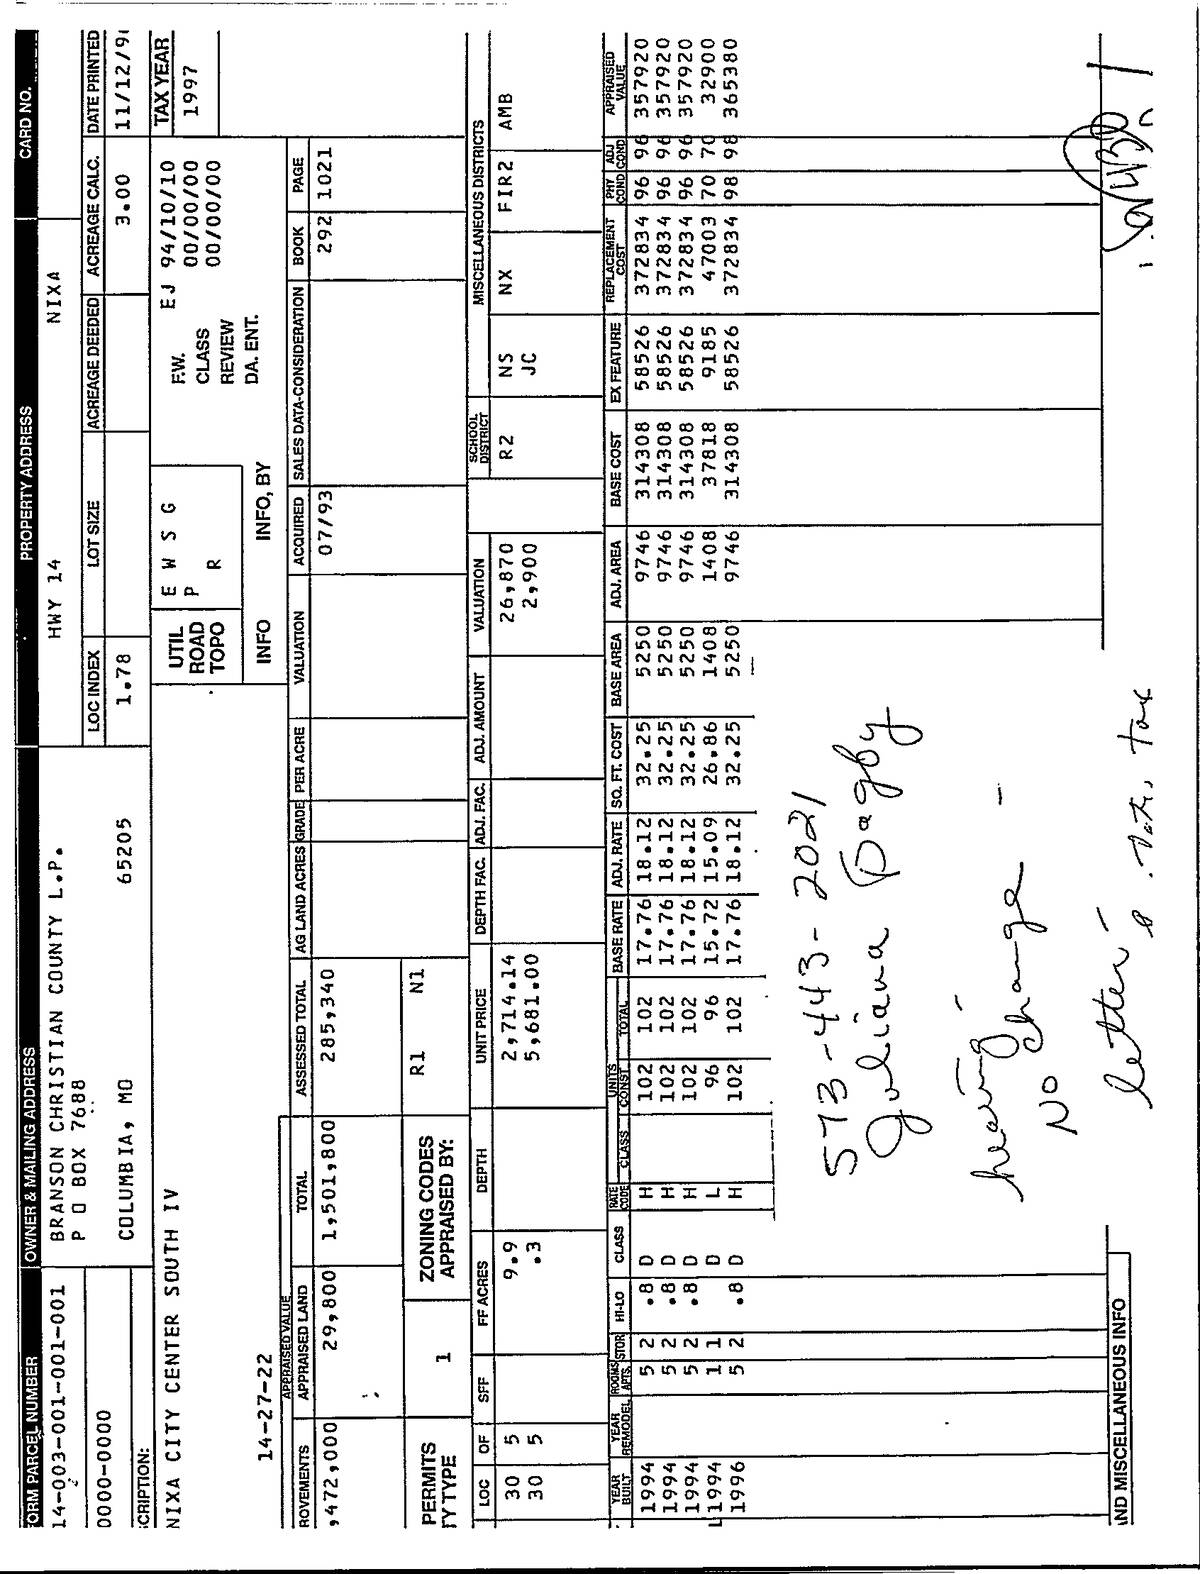 FORM PARCEL NUMBER OWNER & MAILING ADDRESS PROPERTY ADDRESS CARD NO.
14-003-001-001-001 BRANSON CHRISTIAN COUNTY L.P. HWY 14 NIXA
P O BOX 7688 LOC INDEX LOT SIZE ACREAGE DEEDED ACREAGE CALC. DATE PRINTED
0000-0000 COLUMBIA, MO 65205 1.78 3.00 11/12/9
CRIPTION:
NIXA CITY CENTER SOUTH IV
UTIL E W S G F.W. EJ 94/10/10 TAX YEAR
ROAD P CLASS 00/00/00 1997
TOPO R REVIEW 00/00/00
INFO INFO, BY DA. ENT.
14-27-22
APPRAISED VALUE
ROVEMENTS APPRAISED LAND TOTAL ASSESSED TOTAL AG LAND ACRES GRADE PER ACRE VALUATION ACQUIRED SALES DATA-CONSIDERATION BOOK PAGE
,472,000 29,800 1,501,800 285,340 07/93 292 1021
PERMITS ZONING CODES R1 N1
TY TYPE 1 APPRAISED BY:
LOC OF SFF FF ACRES DEPTH UNIT PRICE DEPTH FAC. ADJ. FAC. ADJ. AMOUNT VALUATION SCHOOL DISTRICT MISCELLANEOUS DISTRICTS
30 5 9.9 2,714.14 26,870 R2 NS NX FIR2 AMB
30 5 .3 5,681.00 2,900 JC
YEAR BUILT YEAR REMODEL ROOMS APTS. STOR HI-LO CLASS RATE CODE CLASS UNITS CONST TOTAL BASE RATE ADJ. RATE SQ. FT. COST BASE AREA ADJ. AREA BASE COST EX FEATURE REPLACEMENT COST PHY COND ADJ COND APPRAISED VALUE
1994 5 2 .8 D H 102 102 17.76 18.12 32.25 5250 9746 314308 58526 372834 96 96 357920
1994 5 2 .8 D H 102 102 17.76 18.12 32.25 5250 9746 314308 58526 372834 96 96 357920
1994 5 2 .8 D H 102 102 17.76 18.12 32.25 5250 9746 314308 58526 372834 96 96 357920
1994 1 1 D L 96 96 15.72 15.09 26.86 1408 1408 37818 9185 47003 70 70 32900
1996 5 2 .8 D H 102 102 17.76 18.12 32.25 5250 9746 314308 58526 372834 98 98 365380
573-443-2021
Juliana
hearing -
No change -
letter -
tax
ND MISCELLANEOUS INFO